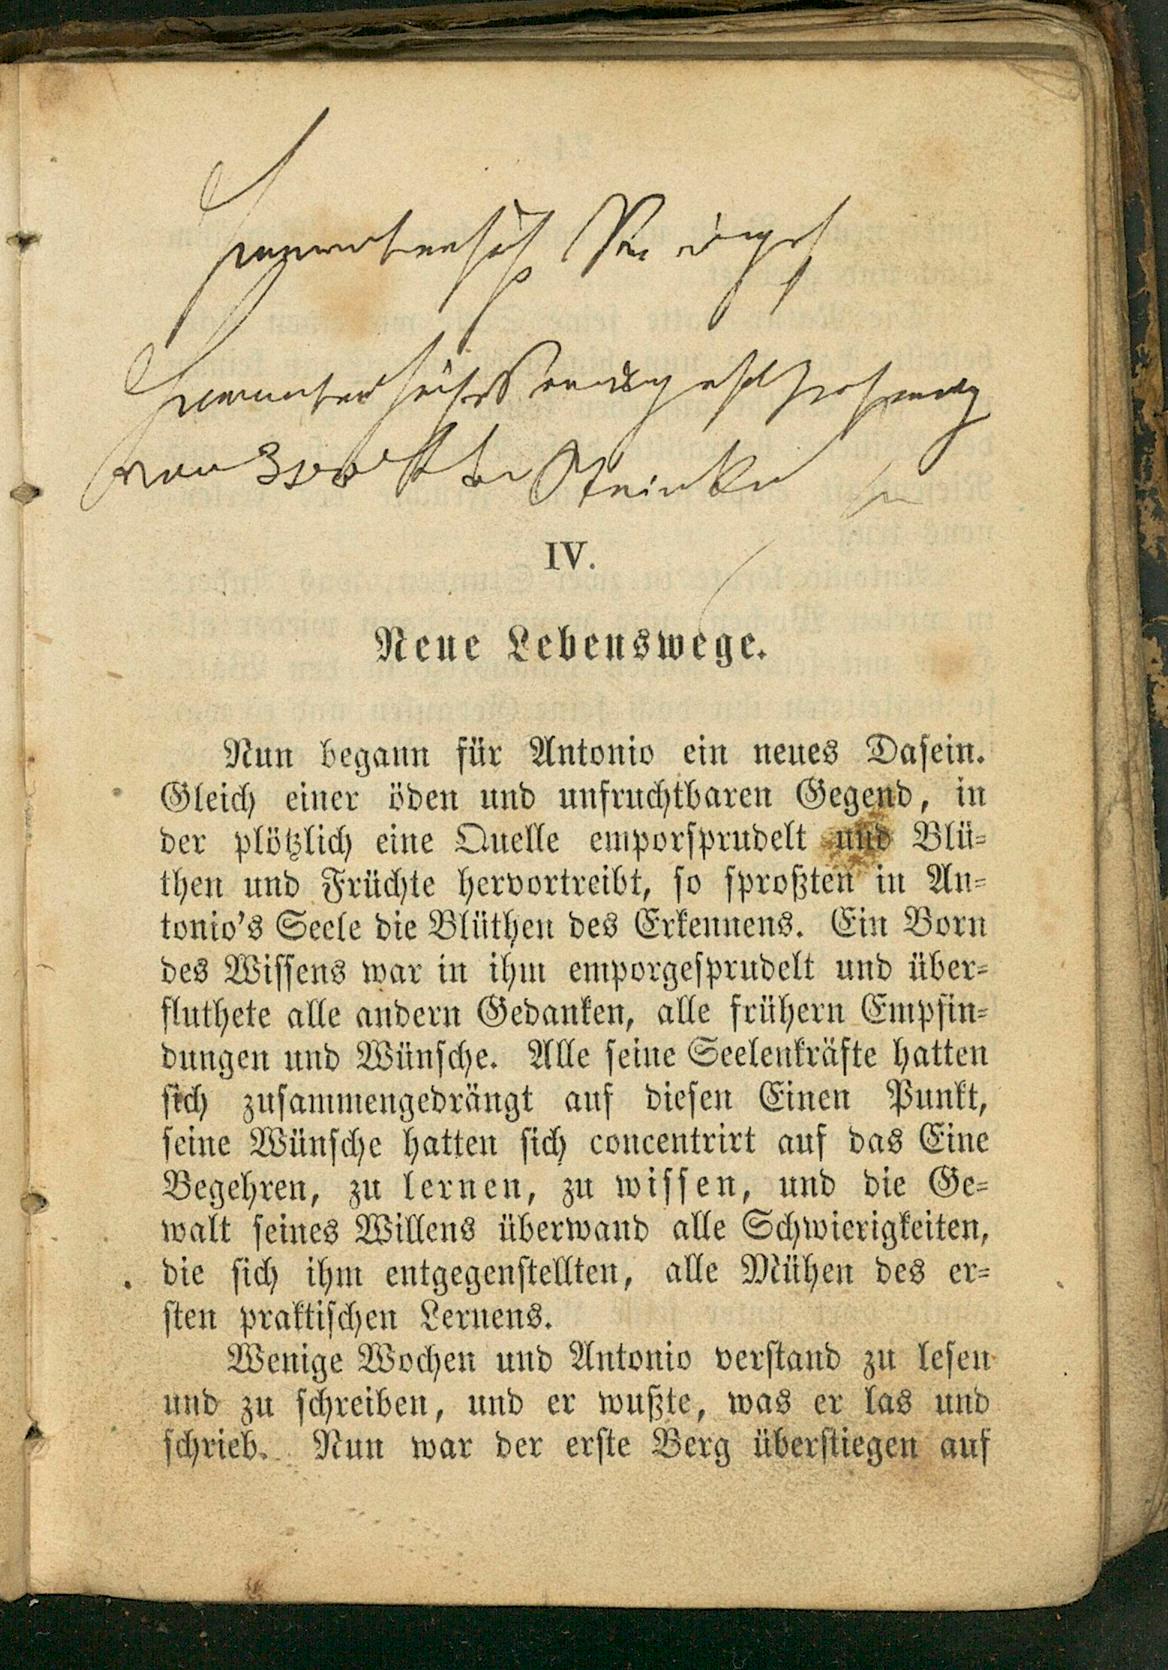 IV.
Neue Lebenswege.
Nun begann für Antonio ein neues Dasein.
Gleich einer öden und unfruchtbaren Gegend, in
der plötzlich eine Quelle emporsprudelt und Blü-
then und Früchte hervortreibt, so sproßten in An-
tonio's Seele die Blüthen des Erkennens. Ein Born
des Wissens war in ihm emporgesprudelt und über-
fluthete alle andern Gedanken, alle frühern Empfin-
dungen und Wünsche. Alle seine Seelenkräfte hatten
sich zusammengedrängt auf diesen Einen Punkt,
seine Wünsche hatten sich concentrirt auf das Eine
Begehren, zu lernen, zu wissen, und die Ge-
walt seines Willens überwand alle Schwierigkeiten,
die sich ihm entgegenstellten, alle Mühen des er-
sten praktischen Lernens.
Wenige Wochen und Antonio verstand zu lesen
und zu schreiben, und er wußte, was er las und
schrieb. Nun war der erste Berg überstiegen auf